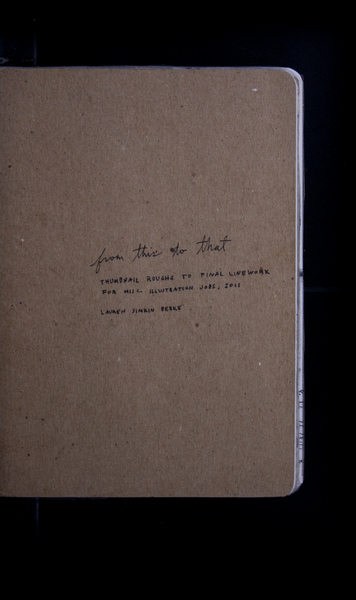 from this to that
THUMBNAIL ROUGHS TO FINAL LINEWORK
FOR MISC. ILLUSTRATION JOBS, 2011
LAUREN SIMKIN BERKE